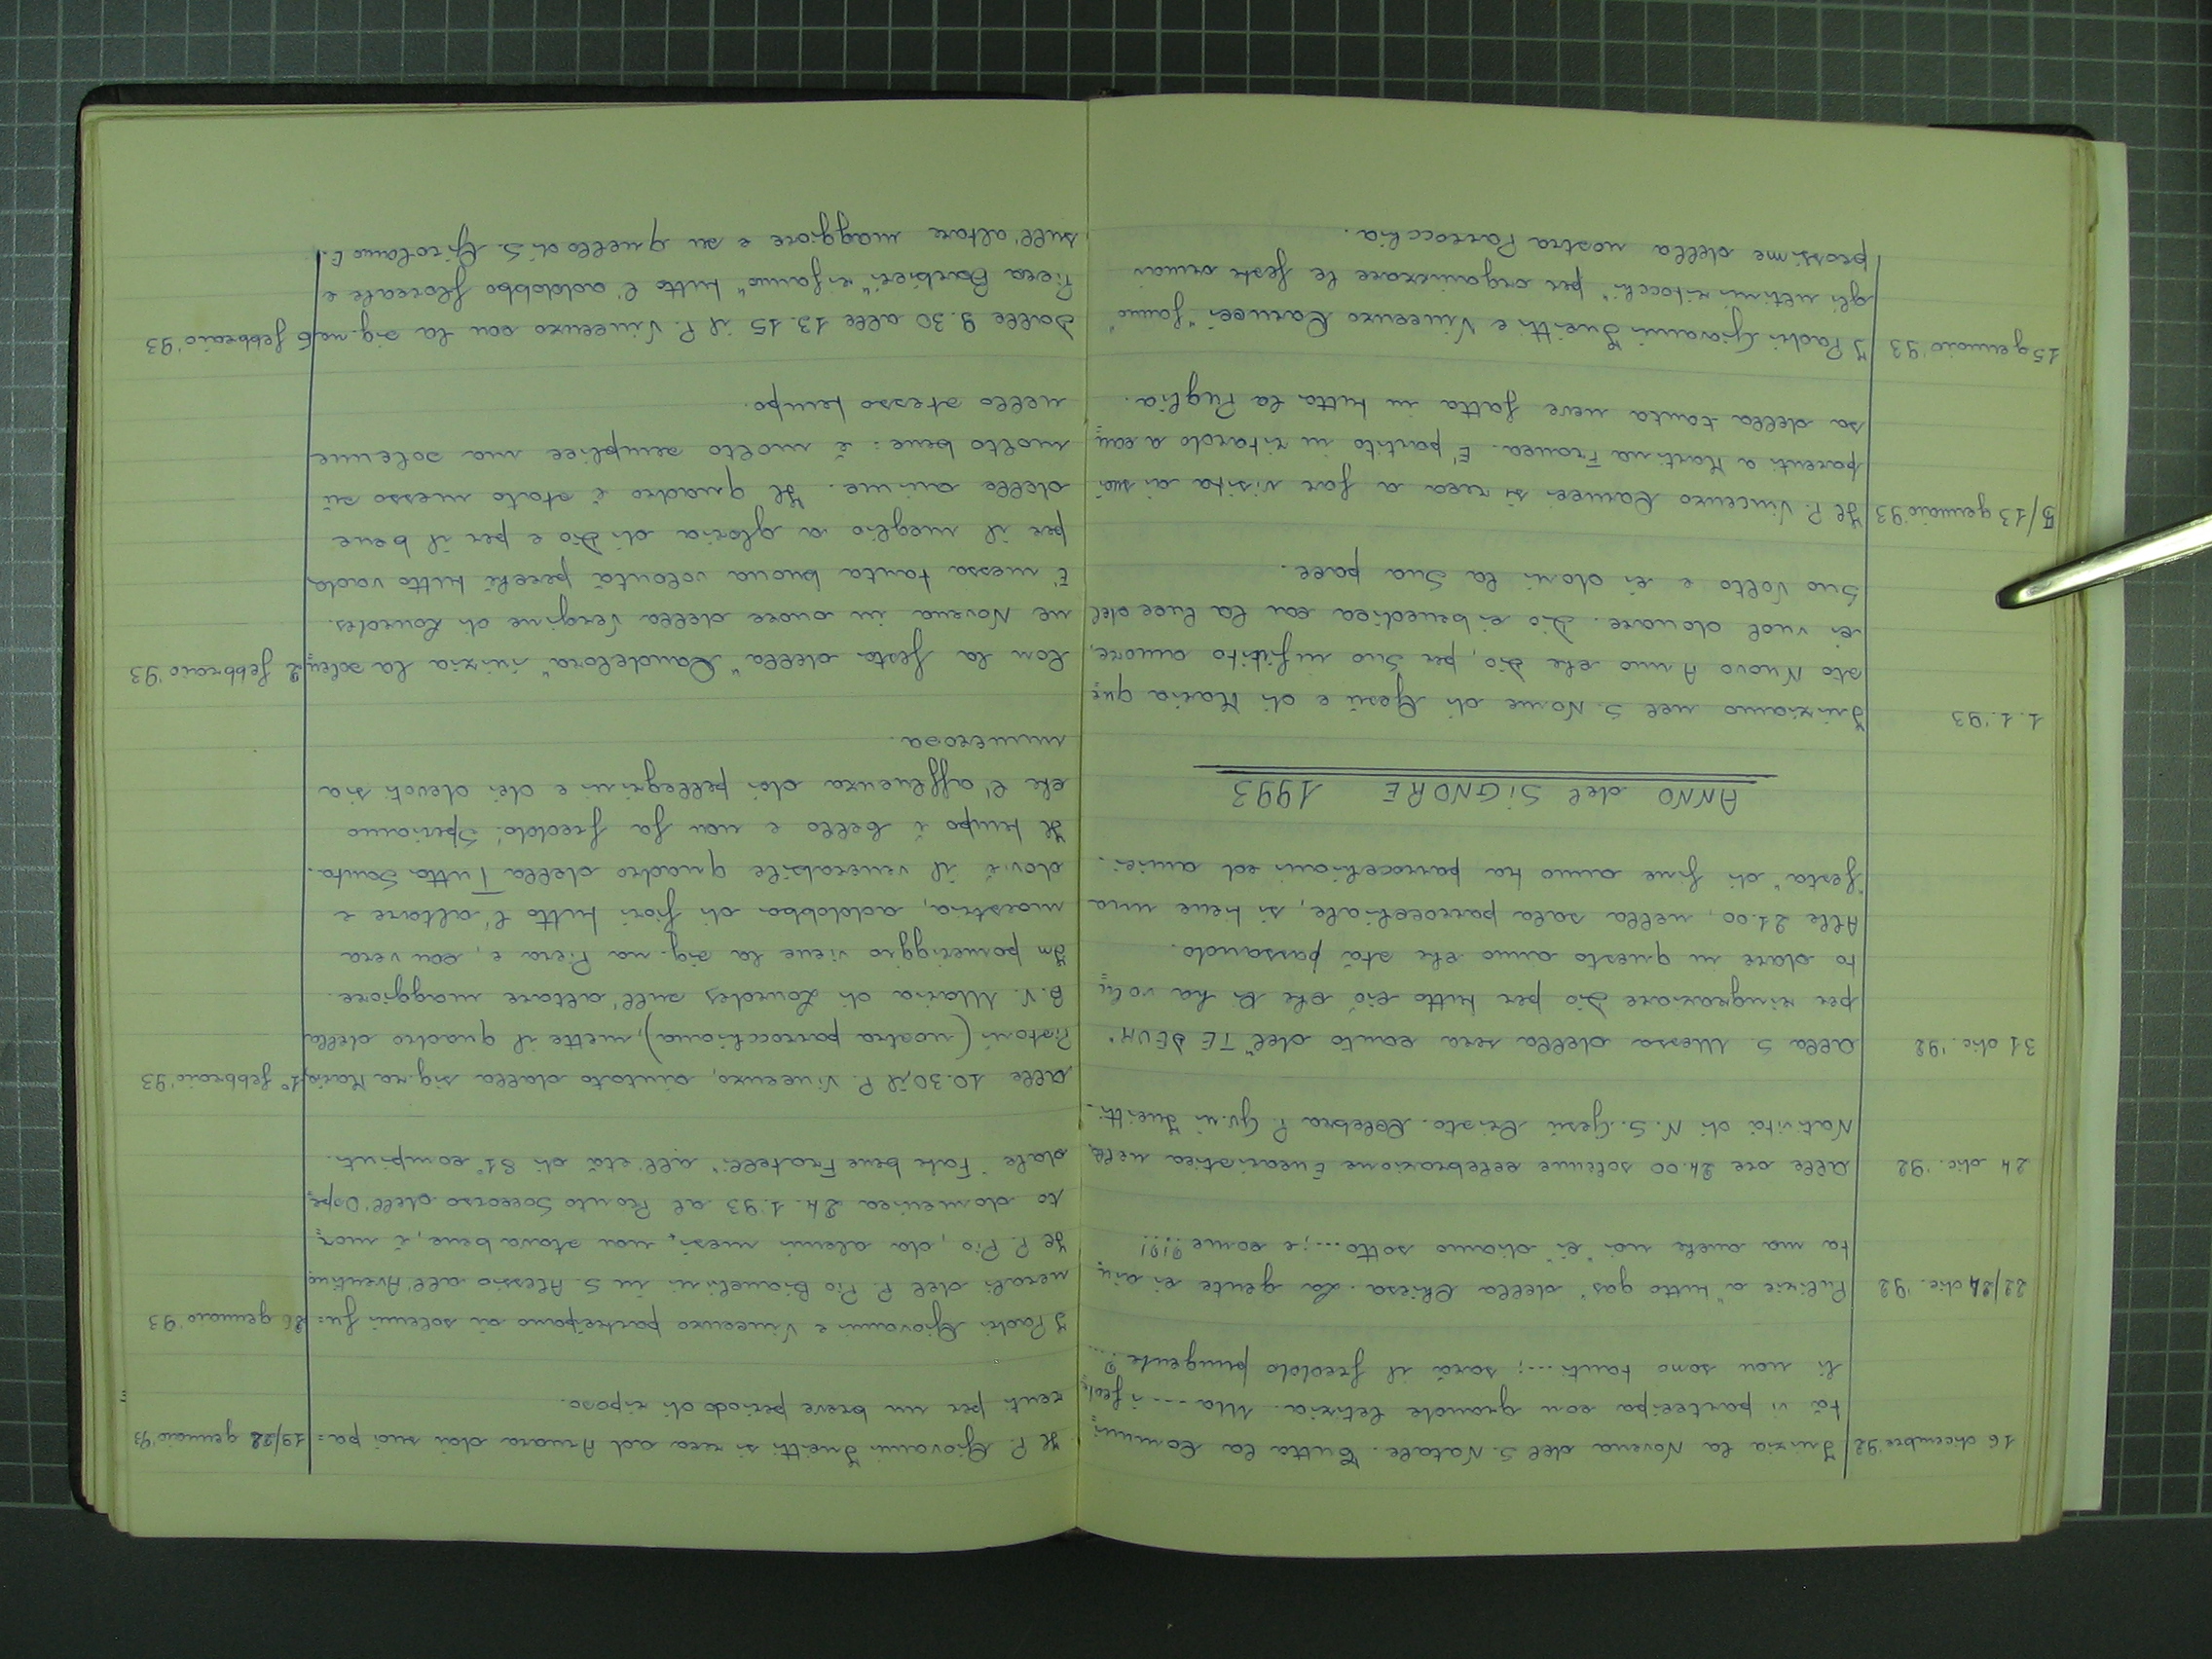 16 dicembre '92 Inizia la Novena del S. Natale. Tutta la Comuni=
tà vi partecipa con grande letizia. Ma .... i fede=
li non sono tanti ....; sarà il freddo pungente?...
22/24 dic. '92 Pulizie a "tutto gas" della Chiesa. La gente ci aiu=
ta ma anche noi "ci" diamo sotto ....; e come ...!?!!
24 dic. '92 Alle ore 24.00 solenne celebrazione Eucaristica nella
Natività di N. S. Gesù Cristo. Celebra P. Gv.ni Jueitti.
31 dic. '92 Alla S. Messa della sera canto del "TE DEUM"
per ringraziare Dio per tutto ciò che ci ha volu=
to dare in questo anno che stà passando.
Alle 21.00, nella sala parrocchiale, si tiene una
"festa" di fine anno tra parrocchiani ed amici.
ANNO del SIGNORE 1993
1.1.'93 Iniziamo nel S. Nome di Gesù e di Maria que=
sto Nuovo Anno che Dio, per Suo infinito amore,
ci vuol donare. Dio ci benedica con la luce del
Suo Volto e ci doni la Sua pace.
5/13 gennaio '93 Il P. Vincenzo Carucci si reca a far visita ai suoi
parenti a Martina Franca. E' partito in ritardo a cau=
sa della tanta neve fatta in tutta la Puglia.
15 gennaio '93 I Padri Giovanni Jueitti e Vincenzo Carucci "fanno"
gli ultimi "ritocchi" per organizzare le feste ormai
prossime della nostra Parrocchia.
19/22 gennaio '93 Il P. Giovanni Jueitti si reca ad Anvara dai suoi pa=
renti per un breve periodo di riposo.
26 gennaio '93 I Padri Giovanni e Vincenzo partecipano ai solenni fu=
nerali del P. Pio Bianchini in S. Alessio all'Aventino.
Il P. Pio, da alcuni mesi, non stava bene, è mor=
to domenica 24.1.'93 al Pronto Soccorso dell'Ospe=
dale "Fate bene Fratelli" all'età di 81 compiuti.
1° febbraio '93 Alle 10.30, il P. Vincenzo, aiutato dalla sig.ra Maria
Pistoni (nostra parrocchiana), mette il quadro della
B.V. Maria di Lourdes sull'altare maggiore.
In pomeriggio viene la sig.na Piera e, con vera
maestria, addobba di fiori tutto l'altare e
dov'è il venerabile quadro della Tutta Santa.
Il tempo è bello e non fa freddo! Speriamo
che l'affluenza dei pellegrini e dei devoti sia
numerosa.
2 febbraio '93 Con la festa della "Candelora" inizia la solen=
ne Novena in onore della Vergine di Lourdes.
E' messa tanta buona volontà perché tutto vada
per il meglio a gloria di Dio e per il bene
delle anime. Il quadro è stato messo sù
molto bene: è molto semplice ma solenne
nello stesso tempo.
6 febbraio '93 Dalle 9.30 alle 13.15 il P. Vincenzo con la sig.na
Piera Barbieri "rifanno" tutto l'addobbo floreale e
sull'altare maggiore e su quello di S. Girolamo E.